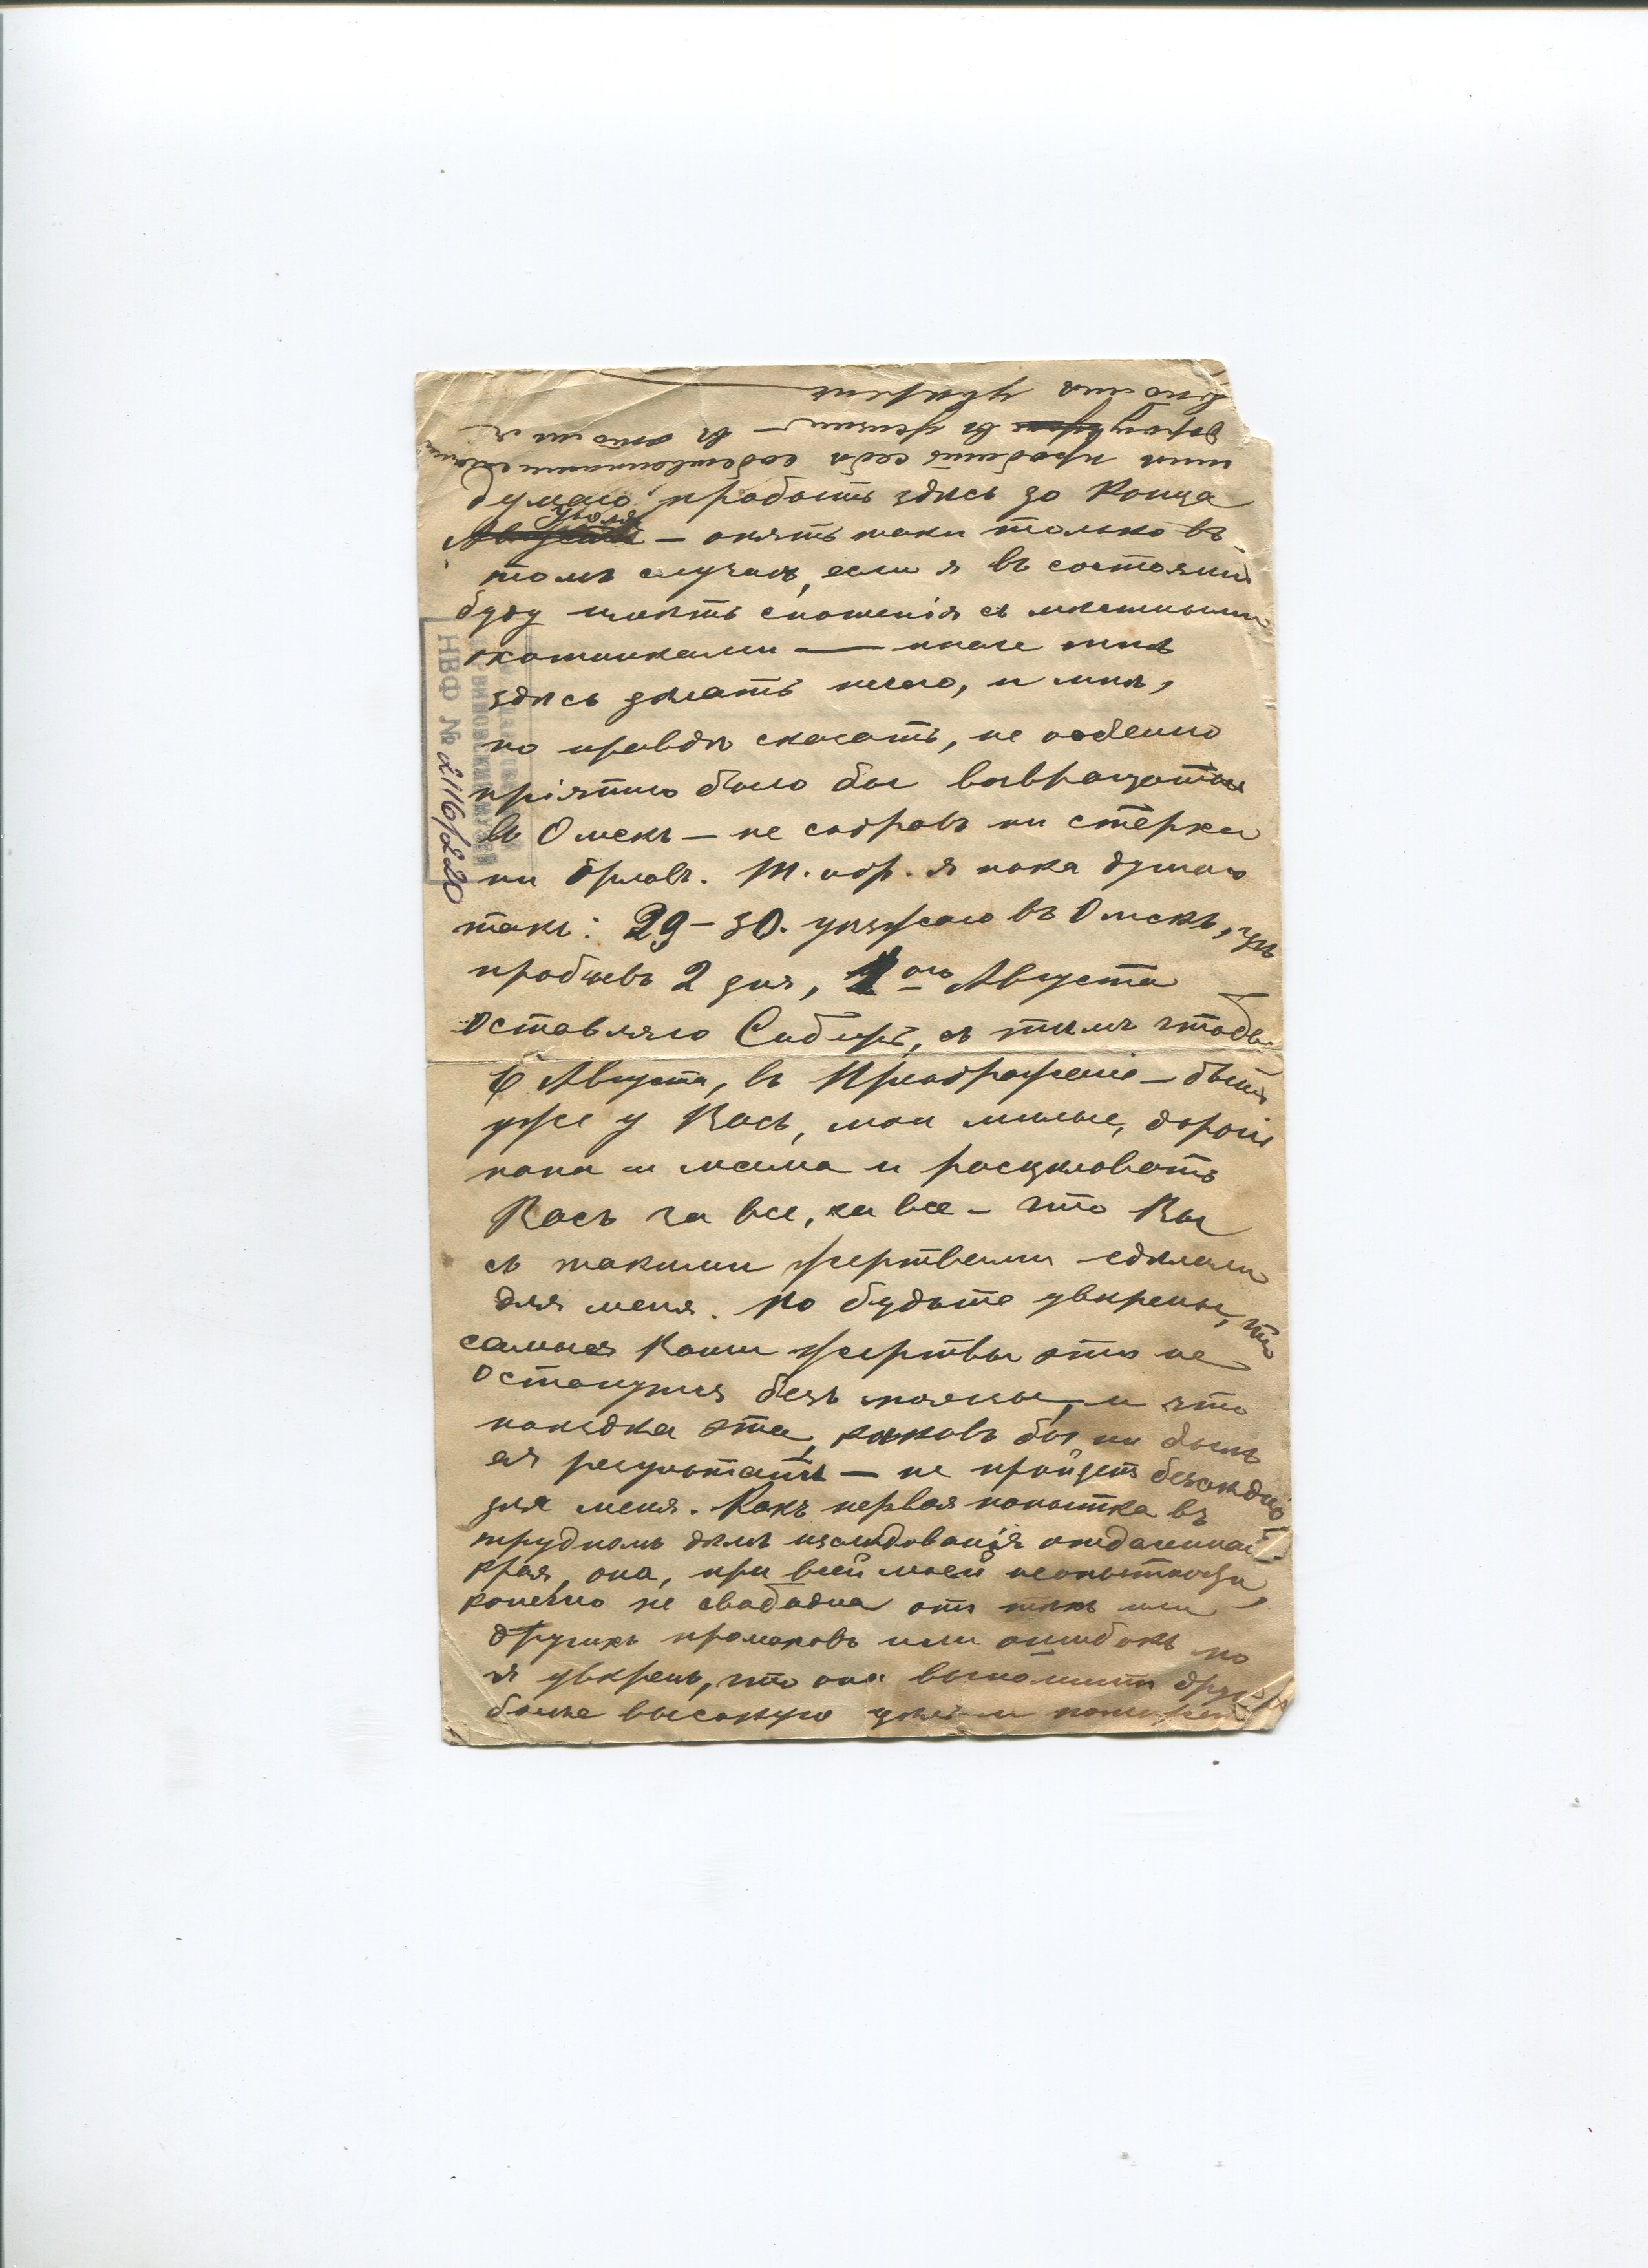 думаю пробыть здѣсь до Конца
Іюля
— опять таки только въ
томъ случаѣ, если я въ состояніи
буду имѣть сношенія съ мѣстными
охотниками — иначе мнѣ
здѣсь дѣлать нечего, и мнѣ,
по правдѣ сказать, не особенно
пріятно было бы возвращаться
въ Омскъ — не содравъ ни стерки
ни
т. обр. я пока думаю
такъ: 29–30. уѣзжаю въ Омскъ, гдѣ
пробывъ 2 дня, 1ого Августа
оставляю Сибирь, съ тѣмъ чтобы
6 Августа, въ Преображеніе — быть
уже у Васъ, мои милые, дорогіе
папа и мама и расцѣловать
Васъ за все, за все — что Вы
съ такими жертвами сдѣлали
для меня. Но будьте увѣрены, что
самыя Ваши жертвы это не
останутся безъ пользы, и что
поѣздка эта, каковъ бы ни былъ
ея результатъ — не пройдетъ безслѣдно
для меня. Какъ первая попытка въ
трудномъ дѣлѣ изслѣдованія отдаленнаго
края, она, при всей моей неопытности,
конечно не свободна отъ тѣхъ или
другихъ промаховъ или ошибокъ но
я увѣренъ, что она выполнитъ другую
болѣе высокую цѣль и
мнѣ пробить себѣ собственными силами
дорогу въ жизни — въ этомъ я
вполнѣ увѣренъ
НВФ № 2116/220